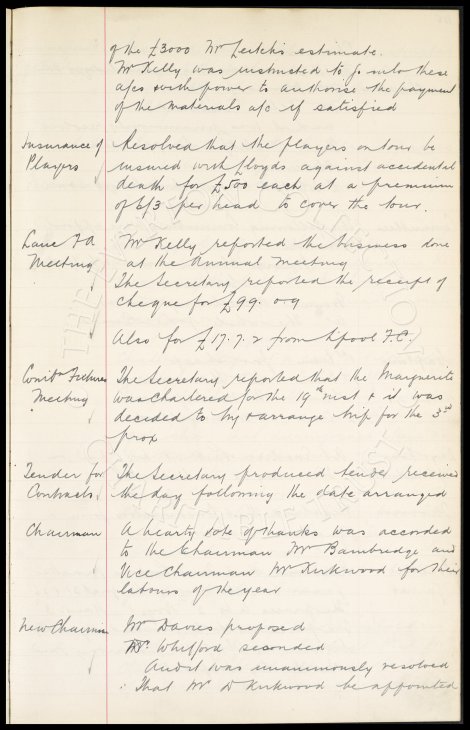 of the £3000 Mr Leitch's estimate.
Mr Kelly was instructed to go into these
a/cs & with power to authorise the payment
of the materials a/c if satisfied
Insurance of
Players
Resolved that the players on tour be
insured with Lloyds against accidental
death for £500 each at a premium
of 6/3 per head to cover the tour.
Lanc F A
Meeting
Mr Kelly reported the business done
at the Annual Meeting
The Secretary reported the receipt of
cheque for £99. 0. 9
Also for £17. 7. 2 from L'pool F.C.
Comb'n Fixtures
Meeting
The Secretary reported that the Marguerite
was chartered for the 19th inst & it was
decided to try & arrange trip for the 3rd
prox
Tender for
Contracts
The Secretary produced tender received
the day following the date arranged
Chairman
A hearty vote of thanks was accorded
to the Chairman Mr Bainbridge and
Vice Chairman Mr Kirkwood for their
labours of the year
New Chairman
Mr Davies proposed
Mr Whitford seconded
And it was unanimously resolved
That Mr D Kirkwood be appointed